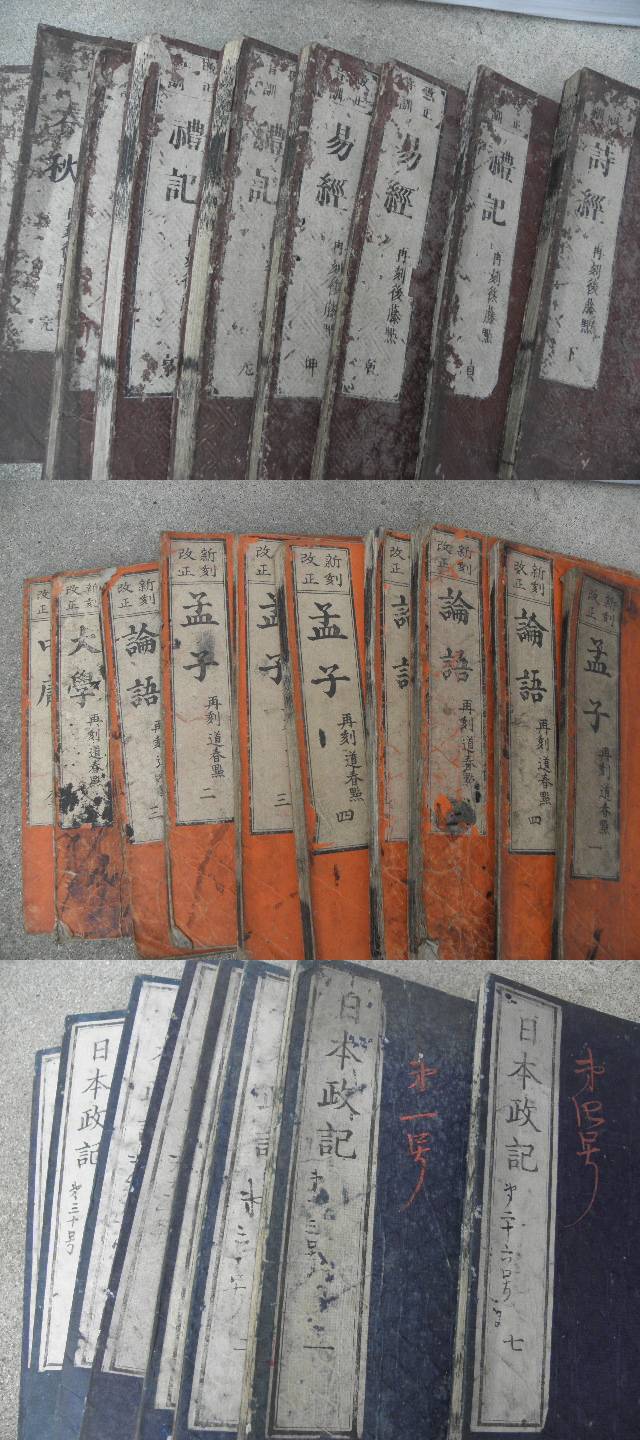 春秋
再刻後藤點
元
禮記
再刻後藤點
禮記
易經
再刻後藤點
坤
改正
音訓
易經
再刻後藤點
乾
禮記
再刻後藤點
貞
詩經
再刻後藤點
下
新刻
改正
中庸
新刻
改正
大學
再刻 道春點
新刻
改正
論語
再刻
三
新刻
改正
孟子
再刻 道春點
二
改正
孟子
三
新刻
改正
孟子
再刻 道春點
四
改正
論語
新刻
改正
論語
再刻 道春點
新刻
改正
論語
再刻 道春點
四
新刻
改正
孟子
再刻 道春點
一
日本政記
第三十号
二
日本政記
一
第一号
日本政記
第二十六号
七
第四号